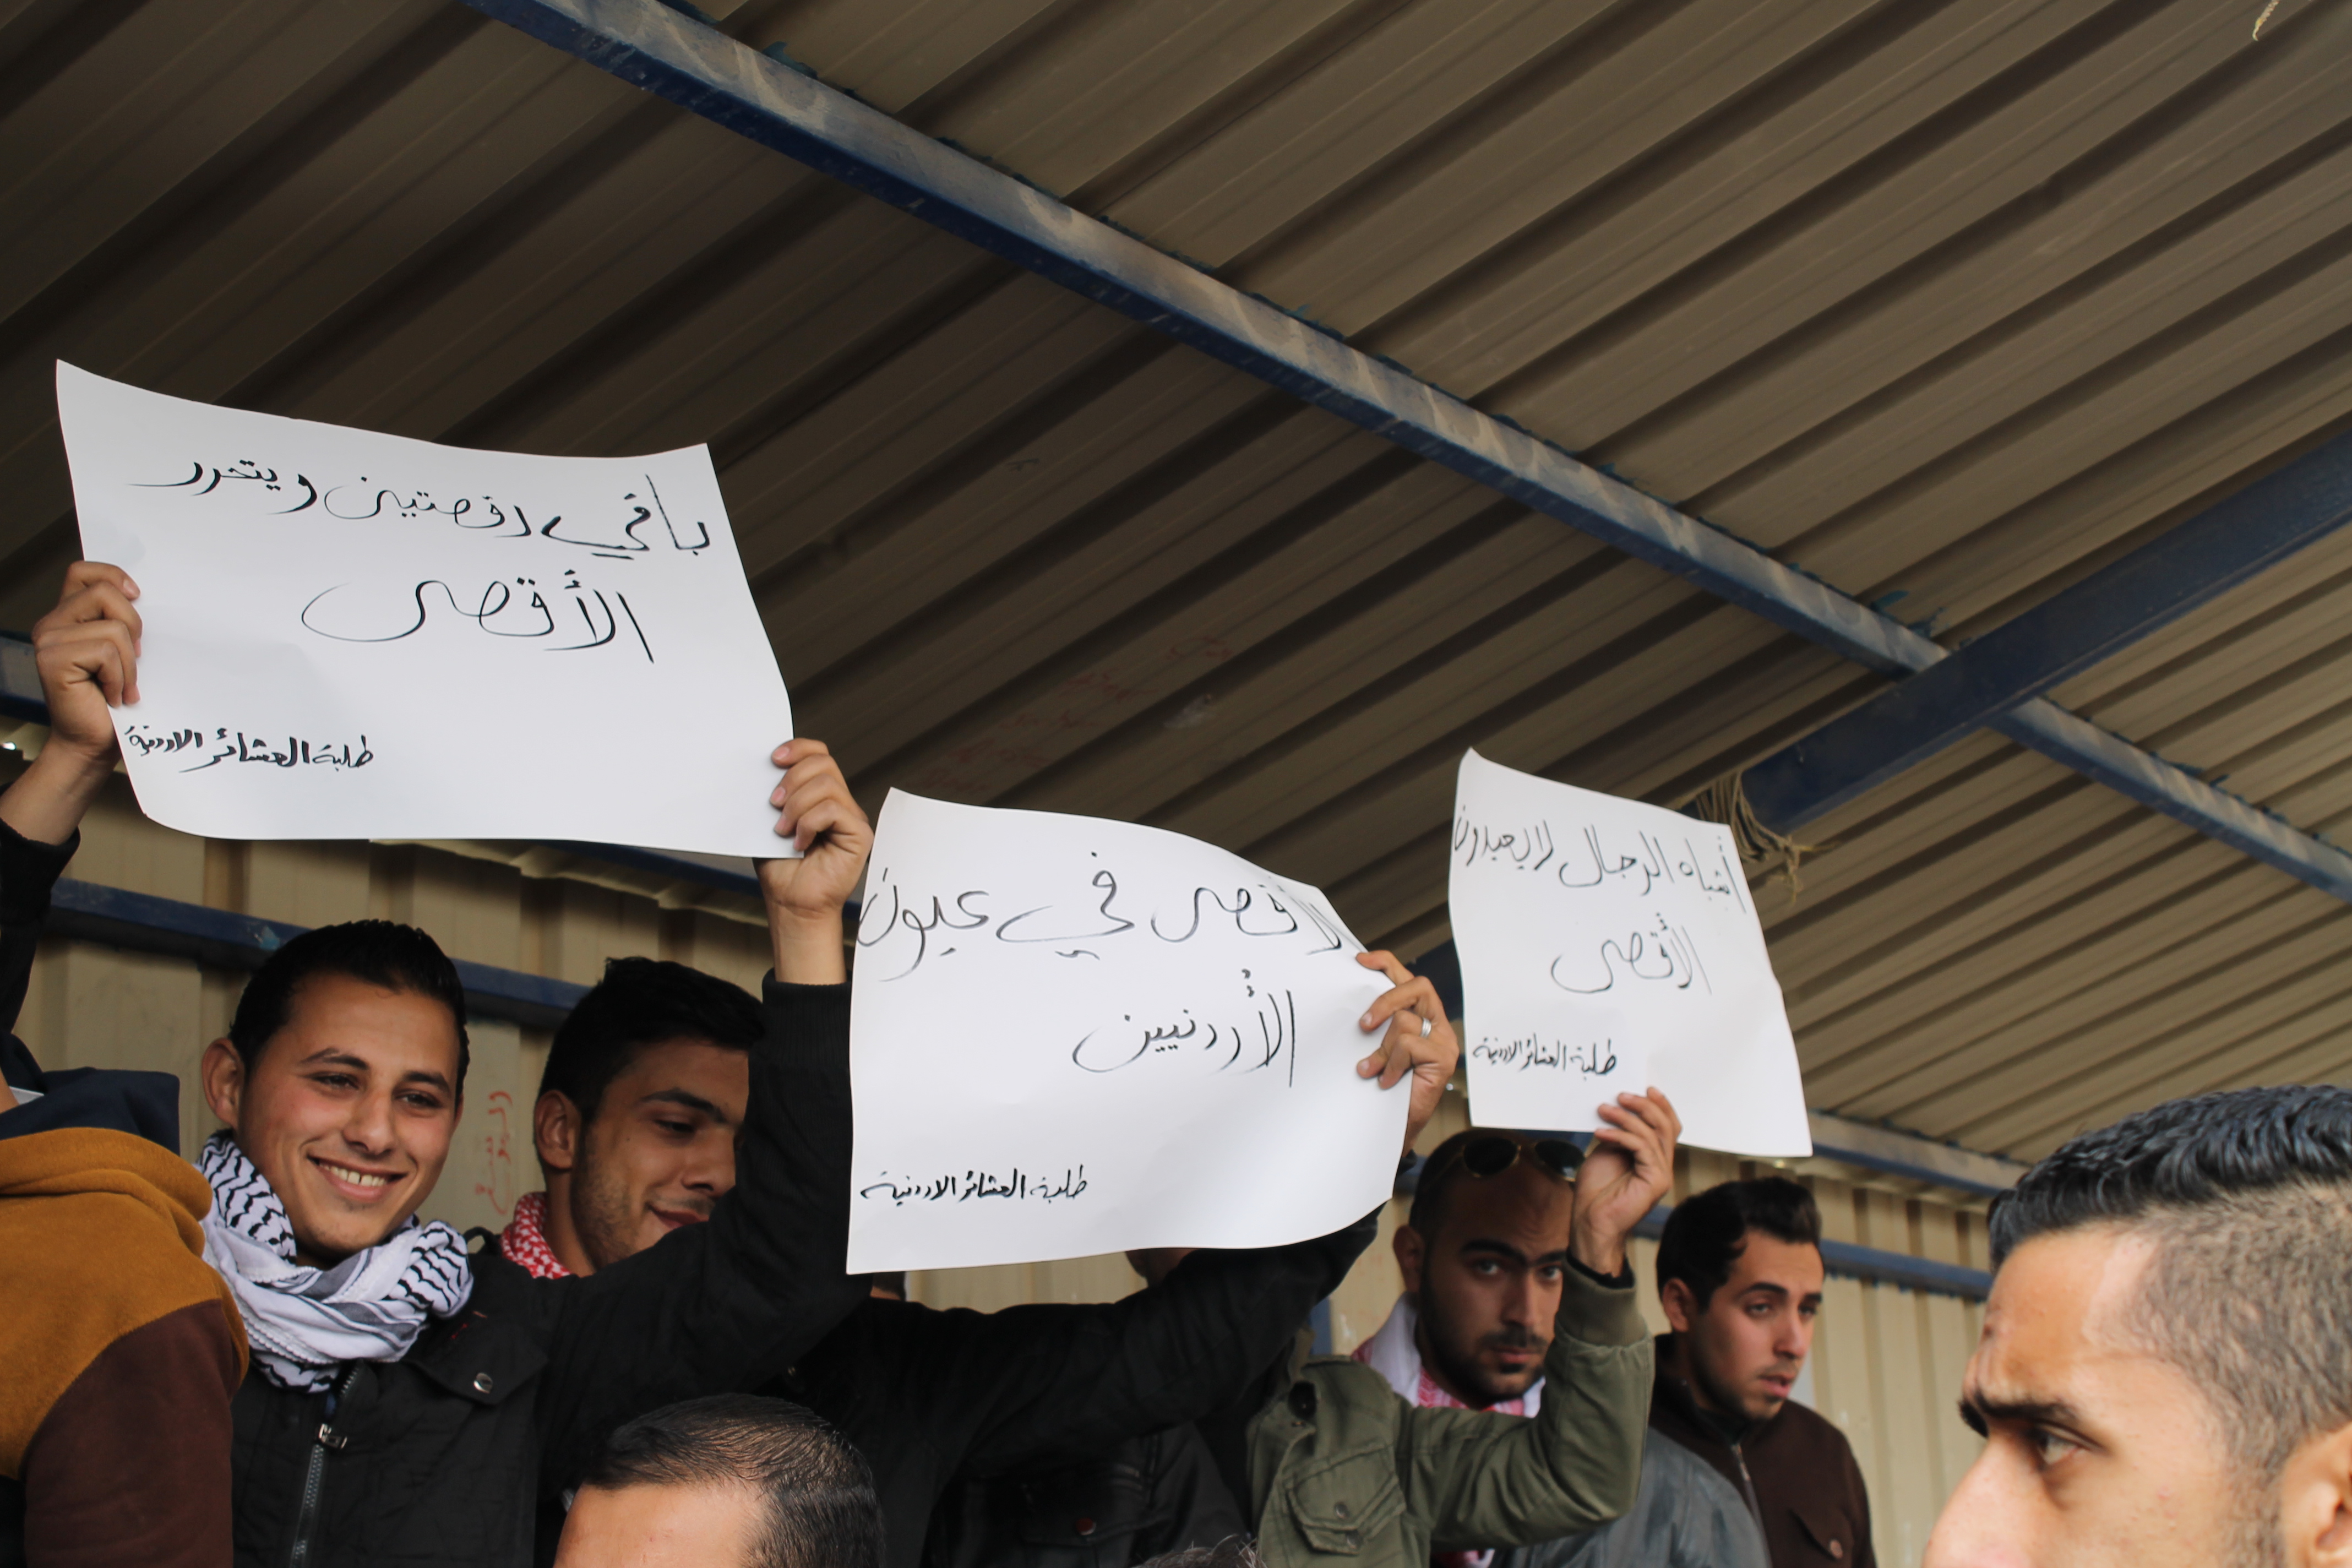 باقي رقصتين ويتحرر
الأقصى
طلبة العشائر الاردنية
الأقصى في عيون
الأردنيين
طلبة العشائر الاردنية
أشباه الرجال لا يعيدون
الأقصى
طلبة العشائر الاردنية